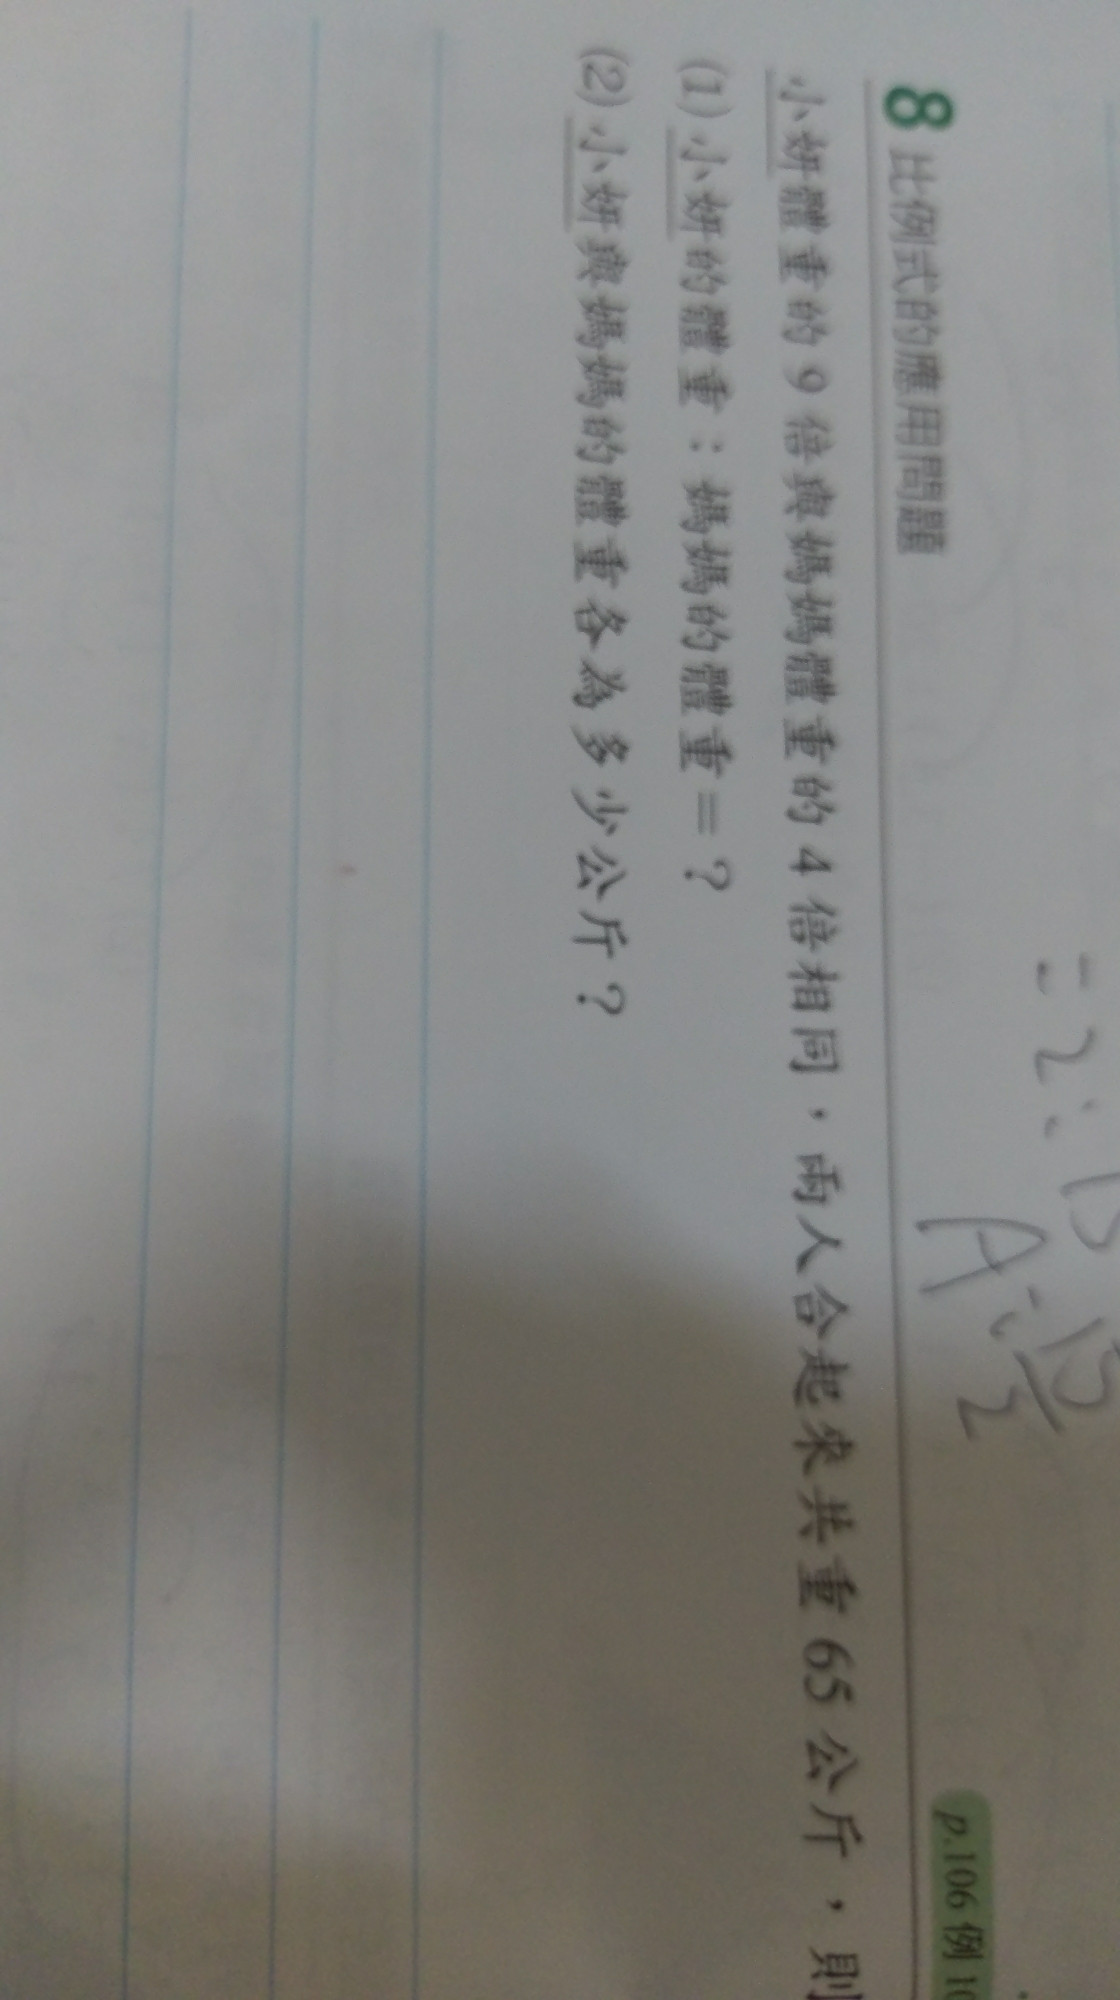 = 2 :
A : 
2
8 比例式的應用問題
p.106 例 10
小妍體重的 9 倍與媽媽體重的 4 倍相同，兩人合起來共重 65 公斤，則
(1) 小妍的體重：媽媽的體重＝？
(2) 小妍與媽媽的體重各為多少公斤？